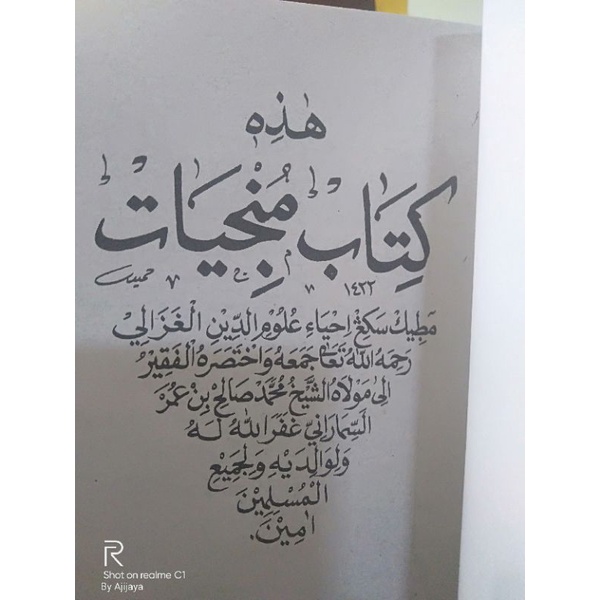 هٰذِهِ
كِتَابُ مُنْجِيَات
١٤٢٢ حميد
مَطِيكْ سَكِڠْ اِحْيَاءِ عُلُوْمِ الدِّيْنِ الْغَزَالِيْ
رَحِمَهُ اللهُ تَعَالَى جَمَعَهُ وَاخْتَصَرَهُ الْفَقِيْرُ
اِلَى مَوْلَاهُ الشَّيْخُ مُحَمَّدْ صَالِحْ بِنْ عُمَرْ
السَّمَارَانِيْ غَفَرَ اللهُ لَهُ
وَلِوَالِدَيْهِ وَلِجَمِيْعِ
الْمُسْلِمِيْنَ
اٰمِيْنَ.
R
Shot on realme C1
By Ajijaya